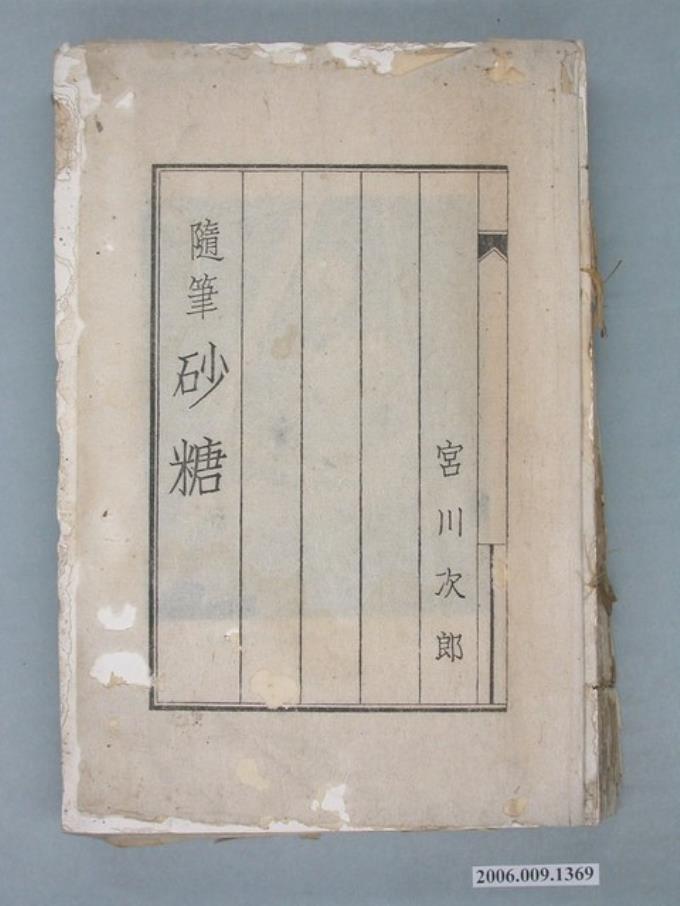 隨筆 砂糖
宮川次郎
2006.009.1369